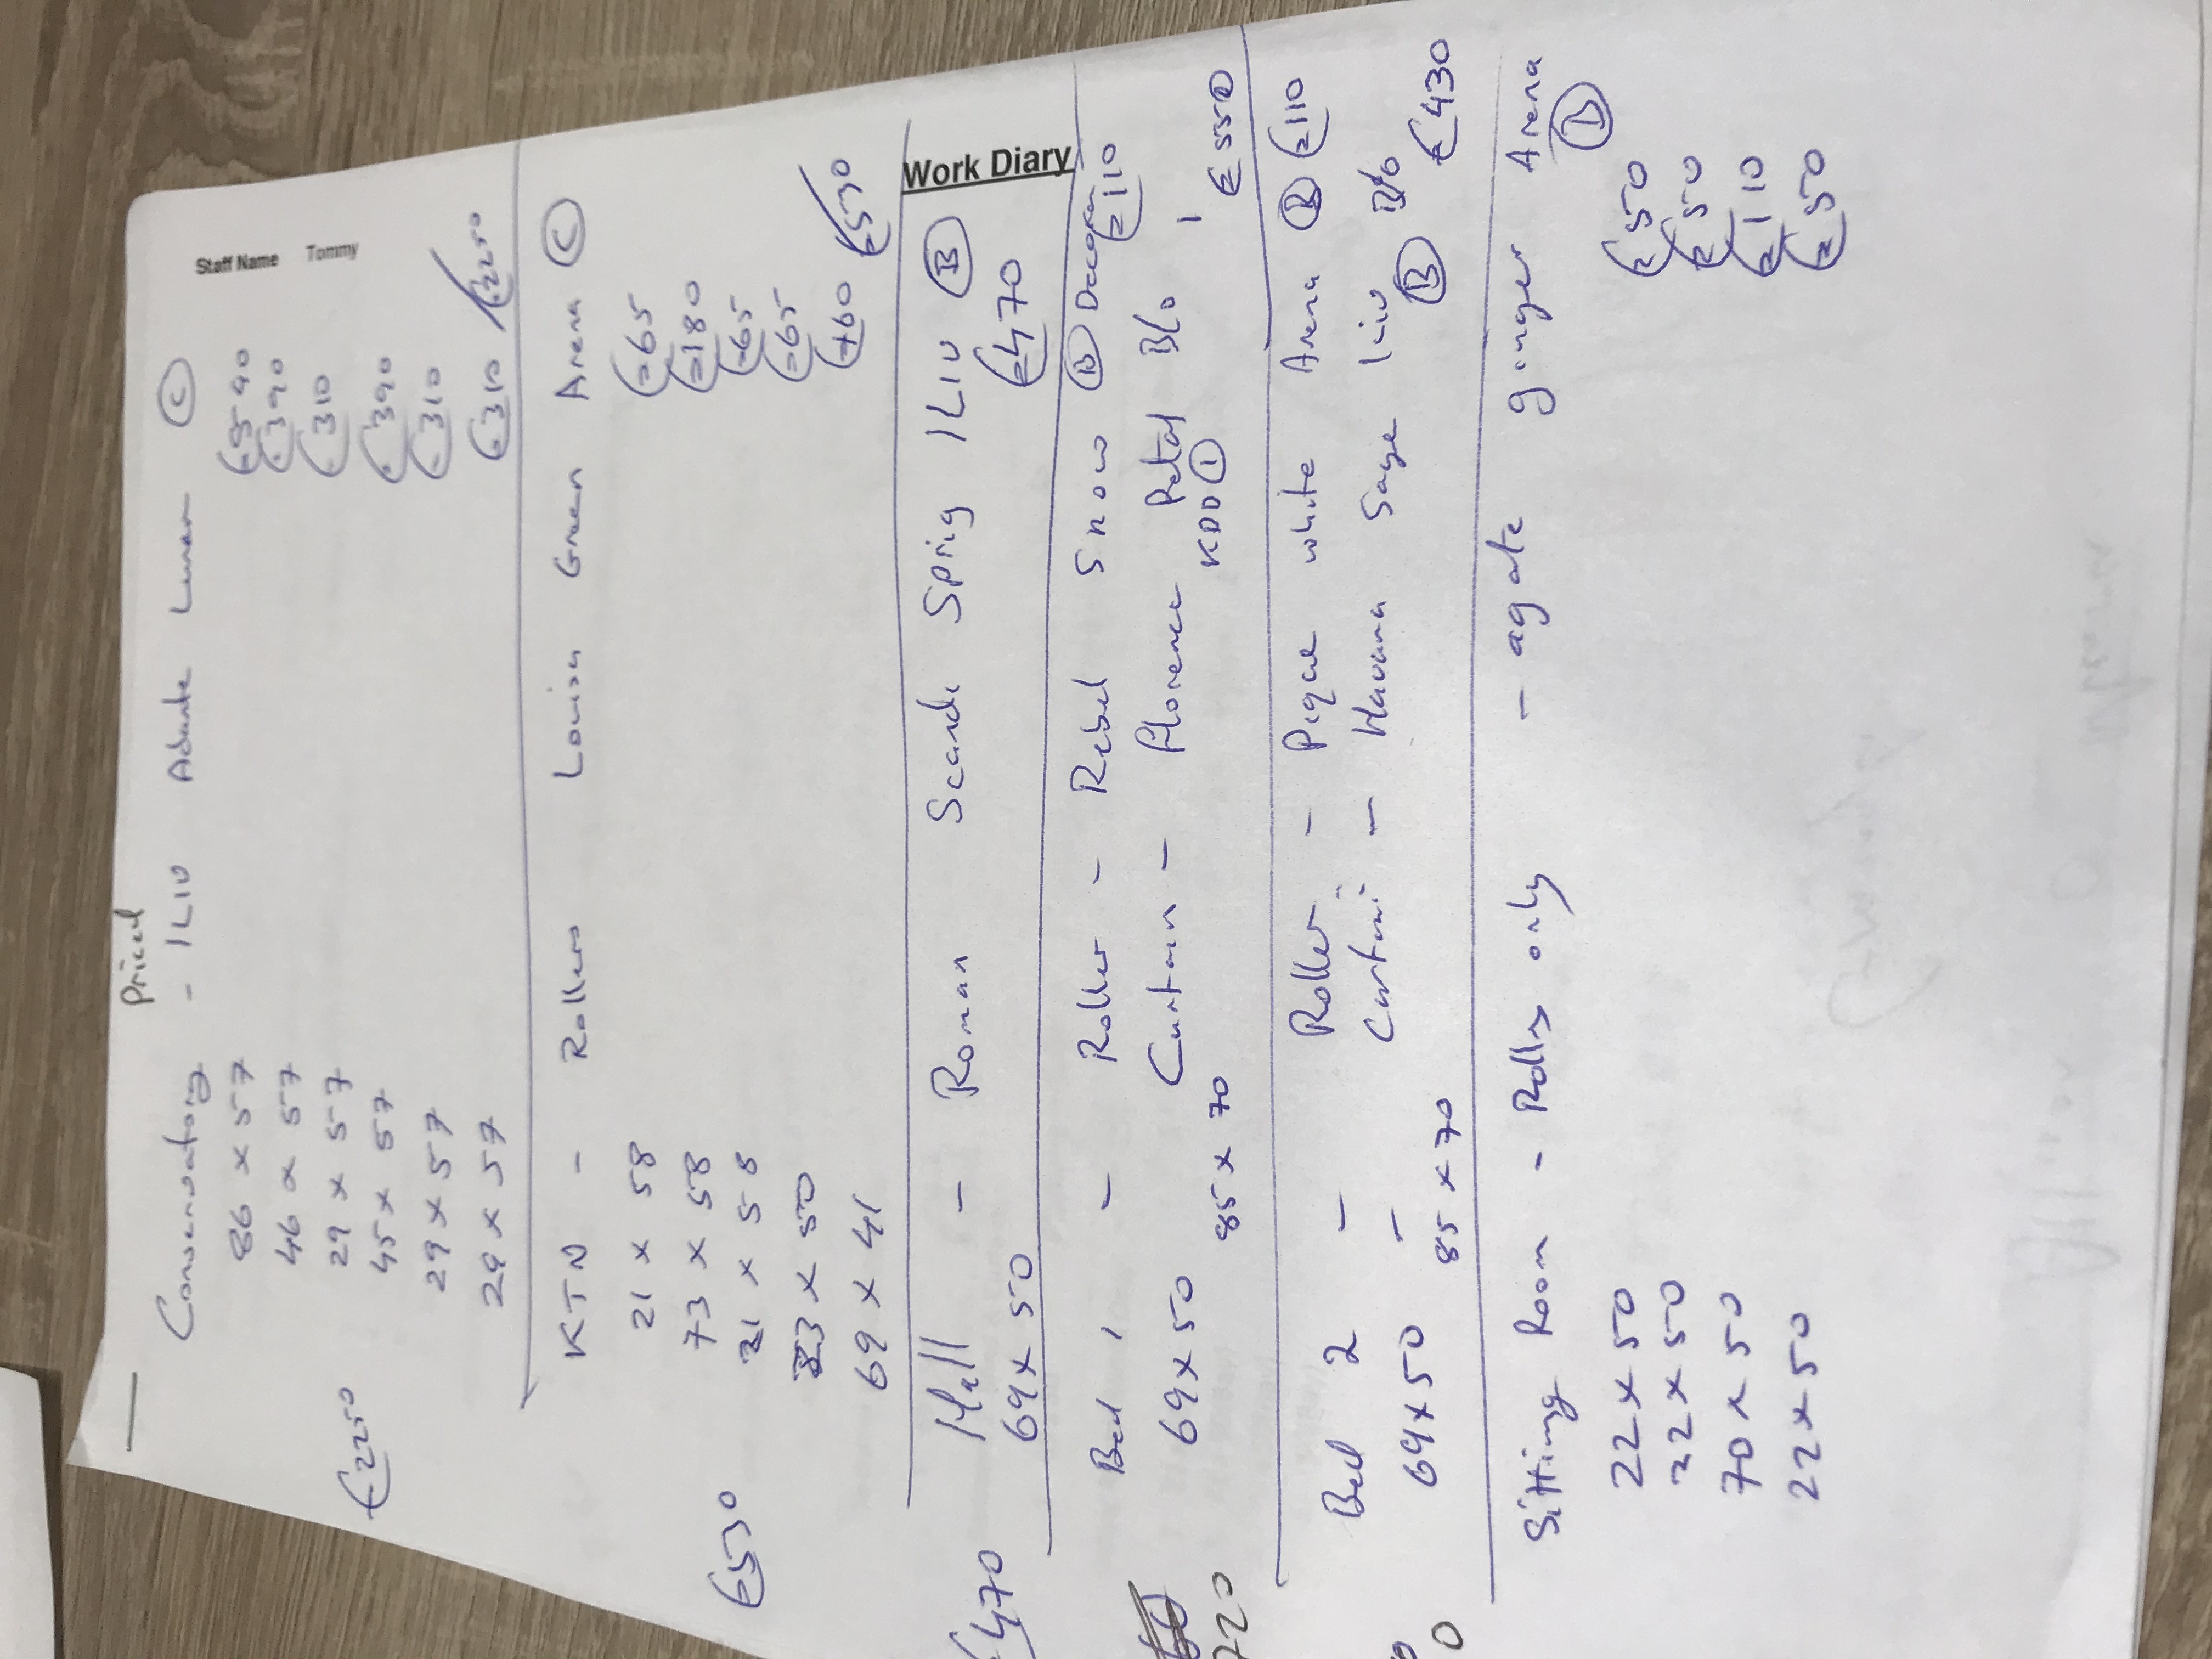 Priced
Staff Name Tommy
Conservatory - ILIV Adante Lunar C
86 x 57 €590
46 x 57 €390
29 x 57 €310
45 x 57 €390
29 x 57 €310
29 x 57 €310 €2250
€2250
KTN - Rollers Louisa Green Arena C
21 x 58 €65
73 x 58 €180
21 x 58 €65
x 50 €65
69 x 41 €160 €530
€530
Work Diary
Hall - Roman Scandi Sprig ILIV B
69 x 50 €470
€470
Bed 1 - Roller - Rebel Snow B Decora €110
69 x 50 Curtain - Florence Petal B/o
85 x 70 KDD 1 €550
720
Bed 2 - Roller - Pique white Arena B €110
- Curtain - Havana Sage Iliv B/o
69 x 50 85 x 70 B €430
0
Sitting Room - Rollers only - agate ginger Arena
B
22 x 50 €50
22 x 50 €50
70 x 50 €110
22 x 50 €50